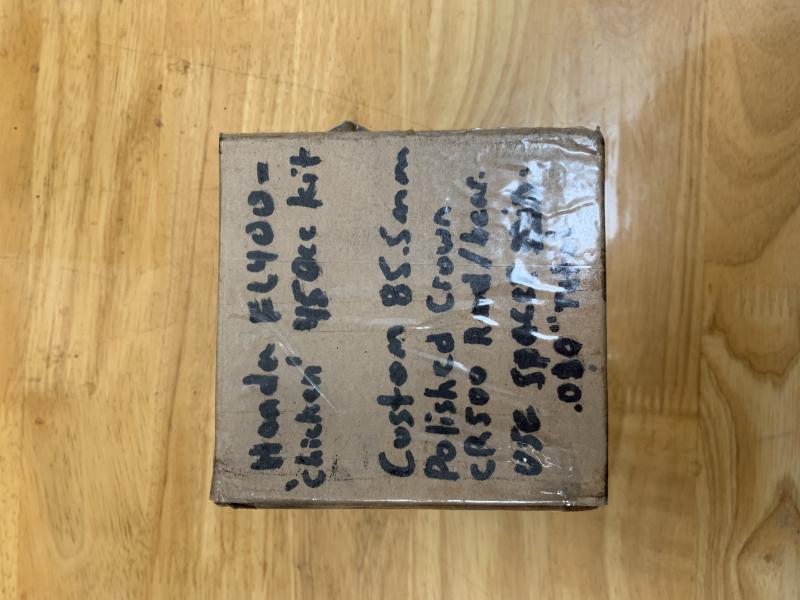 Honda EL400-
'Chicken' 450cc kit
Custom 85.5mm
Polished Crown
CR500 Rod/bear.
use spacer
.080"